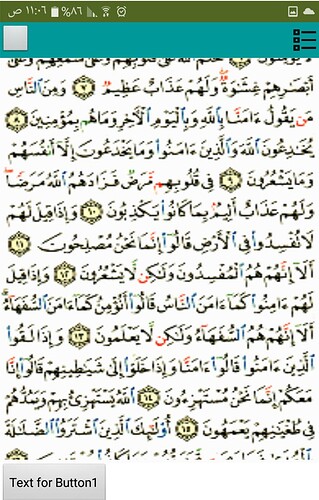 ١١:٠٦ ص
٨٦%
أَبْصَٰرِهِمْ غِشَٰوَةٌ وَلَهُمْ عَذَابٌ عَظِيمٌ ٧ وَمِنَ ٱلنَّاسِ
مَن يَقُولُ ءَامَنَّا بِٱللَّهِ وَبِٱلْيَوْمِ ٱلْءَاخِرِ وَمَا هُم بِمُؤْمِنِينَ ٨
يُخَٰدِعُونَ ٱللَّهَ وَٱلَّذِينَ ءَامَنُوا۟ وَمَا يَخْدَعُونَ إِلَّآ أَنفُسَهُمْ
وَمَا يَشْعُرُونَ ٩ فِى قُلُوبِهِم مَّرَضٌ فَزَادَهُمُ ٱللَّهُ مَرَضًا
وَلَهُمْ عَذَابٌ أَلِيمٌۢ بِمَا كَانُوا۟ يَكْذِبُونَ ١٠ وَإِذَا قِيلَ لَهُمْ
لَا تُفْسِدُوا۟ فِى ٱلْأَرْضِ قَالُوٓا۟ إِنَّمَا نَحْنُ مُصْلِحُونَ ١١
أَلَآ إِنَّهُمْ هُمُ ٱلْمُفْسِدُونَ وَلَٰكِن لَّا يَشْعُرُونَ ١٢ وَإِذَا قِيلَ
لَهُمْ ءَامِنُوا۟ كَمَآ ءَامَنَ ٱلنَّاسُ قَالُوٓا۟ أَنُؤْمِنُ كَمَآ ءَامَنَ ٱلسُّفَهَآءُ
أَلَآ إِنَّهُمْ هُمُ ٱلسُّفَهَآءُ وَلَٰكِن لَّا يَعْلَمُونَ ١٣ وَإِذَا لَقُوا۟
ٱلَّذِينَ ءَامَنُوا۟ قَالُوٓا۟ ءَامَنَّا وَإِذَا خَلَوْا۟ إِلَىٰ شَيَٰطِينِهِمْ قَالُوٓا۟ إِنَّا
مَعَكُمْ إِنَّمَا نَحْنُ مُسْتَهْزِءُونَ ١٤ ٱللَّهُ يَسْتَهْزِئُ بِهِمْ وَيَمُدُّهُمْ
فِى طُغْيَٰنِهِمْ يَعْمَهُونَ ١٥ أُو۟لَٰٓئِكَ ٱلَّذِينَ ٱشْتَرَوُا۟ ٱلضَّلَٰلَةَ
Text for Button1